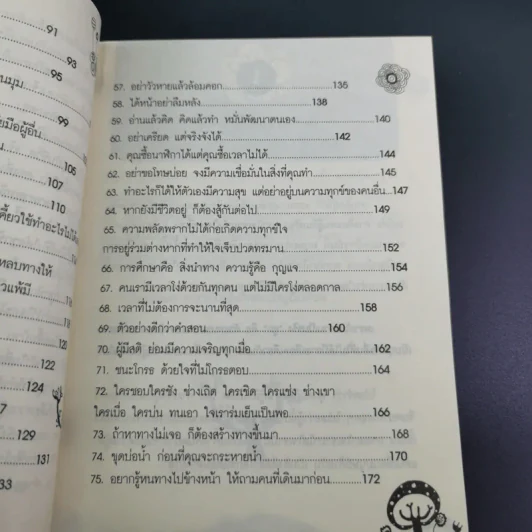 91
93
95
นมุม
99
ยมือผู้อื่น
105
107
110
คี้ยวใช้ทำอะไรไม่ได้
หลบทางให้
แพ้มี
122
124
7
129
131
33
57. อย่าวัวหายแล้วล้อมคอก 136
58. ได้หน้าอย่าลืมหลัง 138
59. อ่านแล้วคิด คิดแล้วทำ หมั่นพัฒนาตนเอง 140
60. อย่าเครียด แต่จริงจังได้ 142
61. คุณซื้อนาฬิกาได้แต่คุณซื้อเวลาไม่ได้ 144
62. อย่าขอโทษบ่อย จงมีความเชื่อมั่นในสิ่งที่คุณทำ 145
63. ทำอะไรก็ได้ให้ตัวเองมีความสุข แต่อย่าอยู่บนความทุกข์ของคนอื่น 147
64. หากยังมีชีวิตอยู่ ก็ต้องสู้กันต่อไป 149
65. ความพลัดพรากไม่ได้ก่อเกิดความทุกข์ใจ
การอยู่ร่วมต่างหากที่ทำให้ใจเจ็บปวดทรมาน 152
66. การศึกษาคือ สิ่งนำทาง ความรู้คือ กุญแจ 154
67. คนเรามีเวลาโง่ด้วยกันทุกคน แต่ไม่มีใครโง่ตลอดกาล 156
68. เวลาที่ไม่ต้องการจะนานที่สุด 158
69. ตัวอย่างดีกว่าคำสอน 160
70. ผู้มีสติ ย่อมมีความเจริญทุกเมื่อ 162
71. ชนะโกรธ ด้วยใจที่ไม่โกรธตอบ 164
72. ใครชอบใครชัง ช่างเถิด ใครเชิด ใครแช่ง ช่างเขา
ใครเบื่อ ใครบ่น ทนเอา ใจเราร่มเย็นเป็นพอ 166
73. ถ้าหาทางไม่เจอ ก็ต้องสร้างทางขึ้นมา 168
74. ขุดบ่อน้ำ ก่อนที่คุณจะกระหายน้ำ 170
75. อยากรู้หนทางไปข้างหน้า ให้ถามคนที่เดินมาก่อน 172